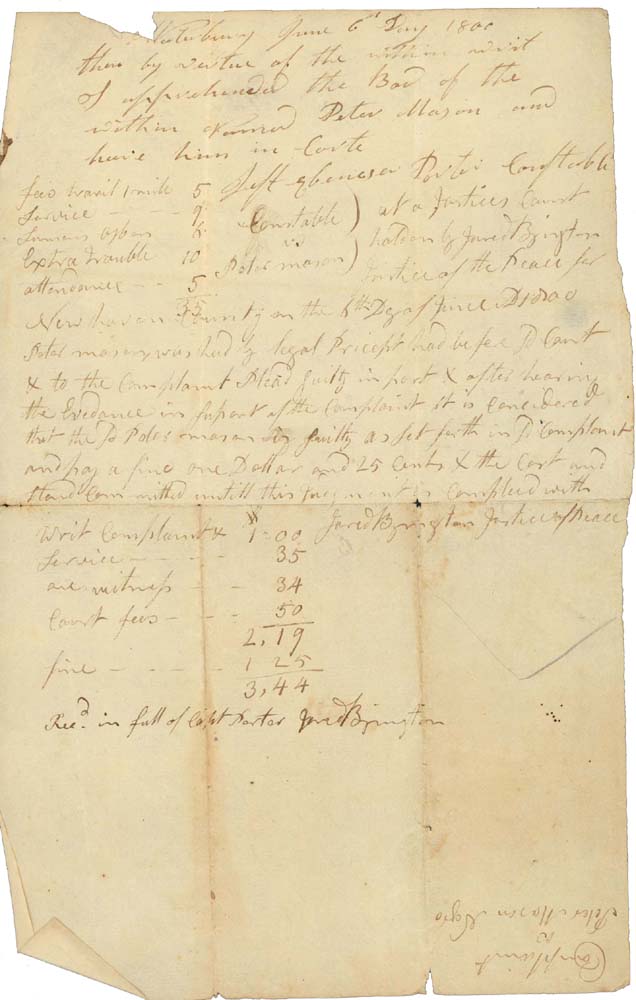 Waterbury June 6th Day 1800
then by vertue of the within writ
I apprehended the Bod of the
within Named Peter Mason and
have him in Corte
Test Ebenesar Porter Constable
fees travil 1 mile 5
Service - - - 9
Sumons 6
Extra trouble 10
attendance - - 5
35
Constable )
vs
Peter mason )
at a Justices Court
holden by Jared Byington
Justice of the Peace for
New haven County on the 6th Day of June AD 1800
Peter mason was had by legal Precept had before sd Court
& to the Complaint Plead guilty in part & after hearing
the Evedance in suport of the Complaint it is Considered
that the sd Peter mason is guilty as set forth in sd Complaint
and pay a fine one Dollar and 25 Cents & the Cost and
Stand Committed untill this Judgment is Complied with
Jared Byington Justice of Peace
Writ Complaint & 1-00
Service - - - - 35
one witness - - 34
Court fees - - - 50
2,19
fine - - - - 1 25
3,44
Recd in full of Capt Porter Jared Byington
Complaint
vs
Peter Mason Negro